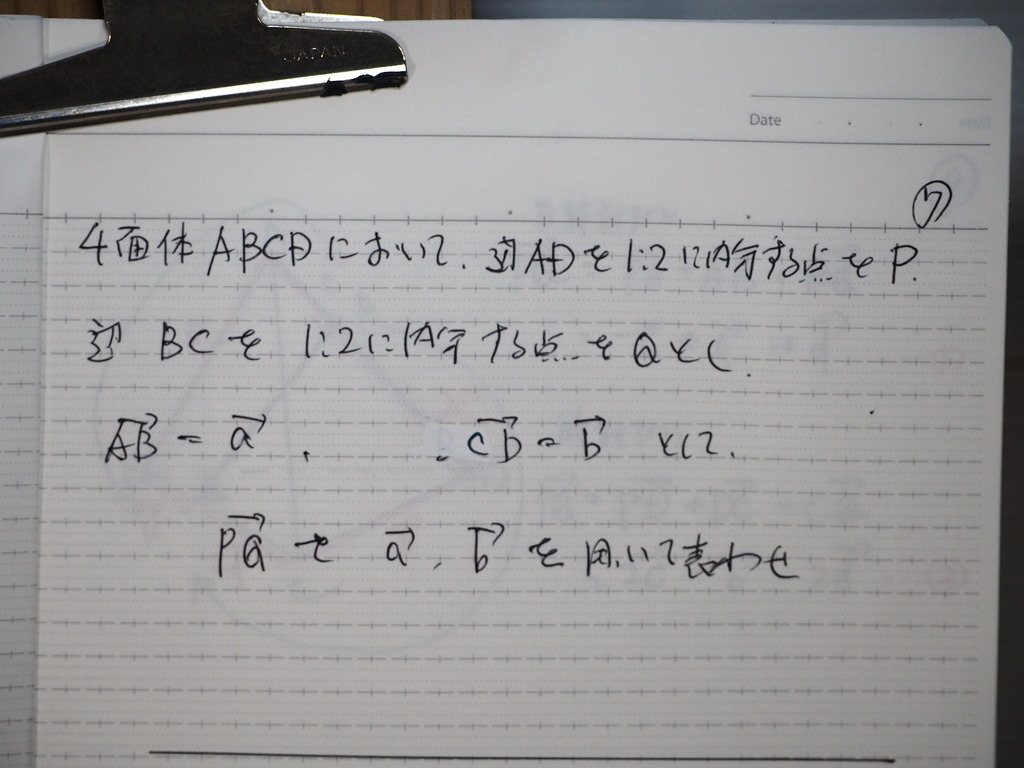 JAPAN
Date
⑦
4面体ABCDにおいて、辺ADを1:2に内分する点をP.
辺 BCを 1:2に内分する点をQとし.
AB = a , . CD = b として.
PQ を a, b を用いて表わせ